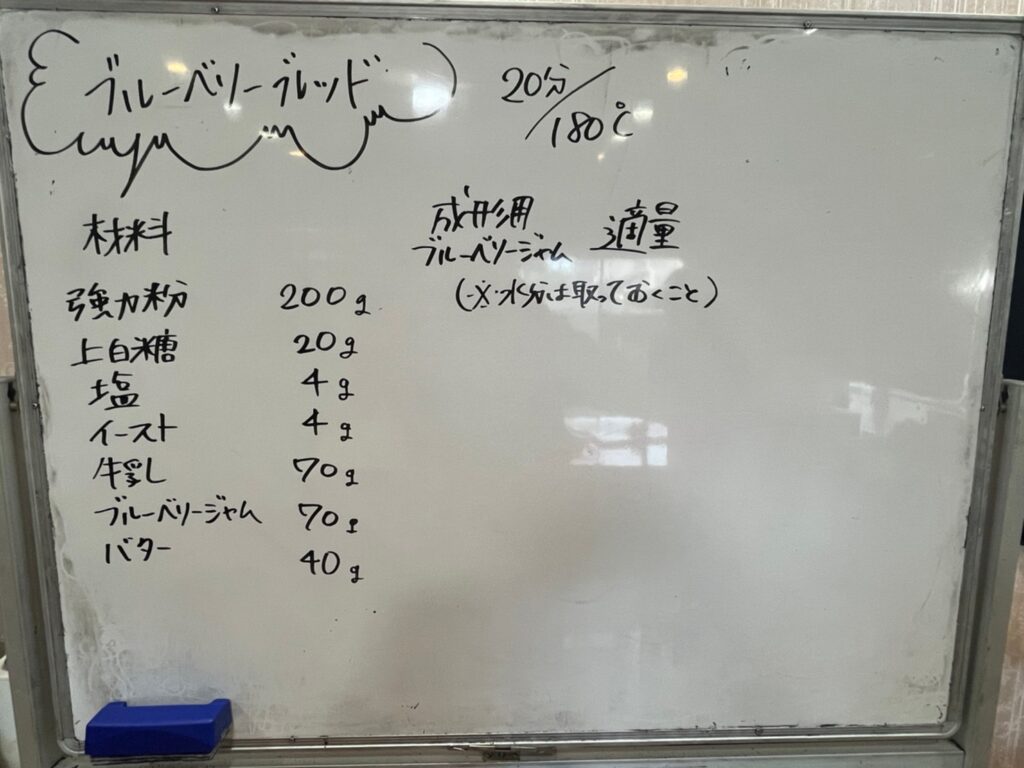 ブルーベリーブレッド
20分/180℃
材料
強力粉 200g
上白糖 20g
塩 4g
イースト 4g
牛乳 70g
ブルーベリージャム 70g
バター 40g
成形用
ブルーベリージャム 適量
(※水分は取っておくこと)